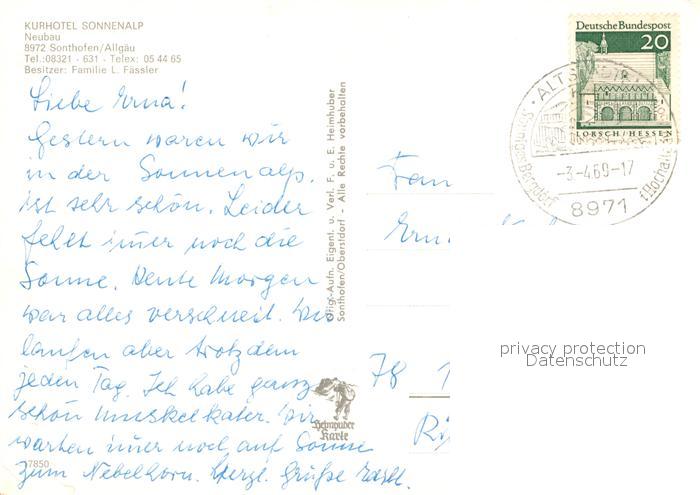 KURHOTEL SONNENALP
Neubau
8972 Sonthofen/Allgäu
Tel.:08321 - 631 - Telex: 05 44 65
Besitzer: Familie L. Fässler
Liebe Erna!
Gestern waren wir
in der Sonnenalp.
ist sehr schön. Leider
fehlt immer noch die
Sonne. Heute Morgen
war alles verschneit. Wir
laufen aber trotzdem
jeden Tag. Ich habe ganz
schön Muskelkater. Wir
warten immer noch auf Sonne
zum Nebelhorn. Herzl. Grüße
7850
Orig.-Aufn. Eigent. u. Verl. F. u. E. Heimhuber
Sonthofen/Oberstdorf - Alle Rechte vorbehalten
Heimhuber
Karte
Deutsche Bundespost
20
LORSCH/HESSEN
-3-4.69-17
8971
Frau
78
privacy protection
Datenschutz